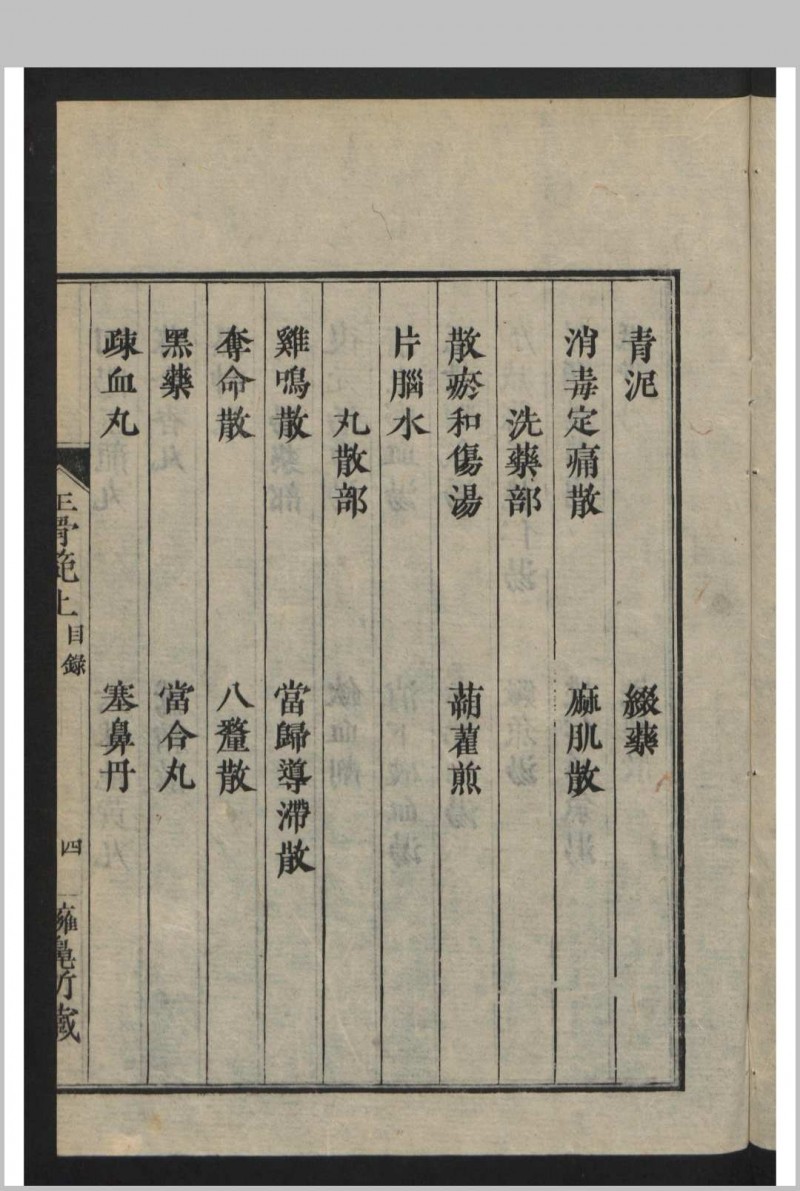 青泥 綴藥
消毒定痛散 麻肌散
洗藥部
散瘀和傷湯 蒴藋煎
片腦水
丸散部
雞鳴散 當歸導滯散
奪命散 八釐散
黑藥 當合丸
疎血丸 塞鼻丹
正骨範上 目錄 四